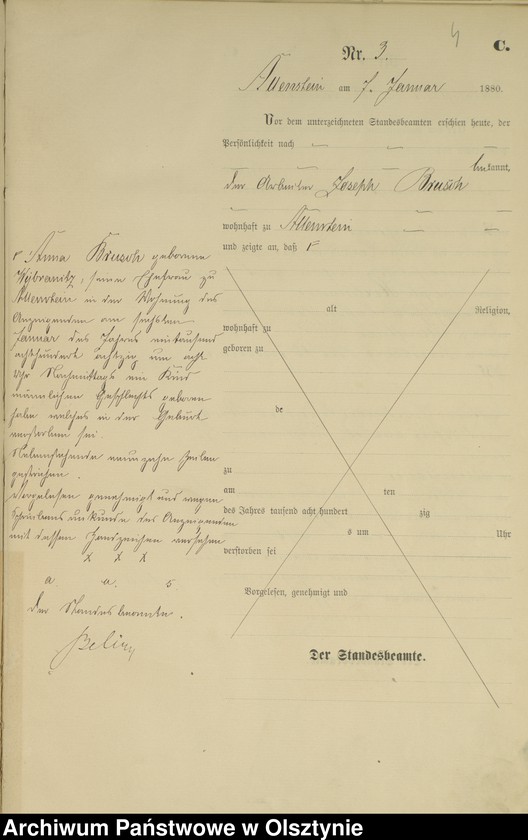 4
C.
Nr. 3.
Allenstein am 7. Januar 1880.
Vor dem unterzeichneten Standesbeamten erschien heute, der
Persönlichkeit nach
bekannt,
der Arbeiter Joseph Brusch
wohnhaft zu Allenstein
und zeigte an, daß
Anna Brusch geborene
Wybranitz, seine Ehefrau zu
Allenstein in der Wohnung des
Anzeigenden am sechsten
Januar des Jahres eintausend
achthundert achtzig um acht
Uhr Nachmittags ein Kind
männlichen Geschlechts geboren
habe welches in der Geburt
verstorben sei.
Nebenstehende neunzehn Zeilen
gestrichen.
Vorgelesen genehmigt und wegen
Schreibensunkunde des Anzeigenden
mit dessen Handzeichen versehen
x x x
a. u. s.
Der Standesbeamte.
alt Religion,
wohnhaft zu
geboren zu
de
zu
am ten
des Jahres tausend acht hundert zig
s um Uhr
verstorben sei
Vorgelesen, genehmigt und
Der Standesbeamte.
Archiwum Państwowe w Olsztynie